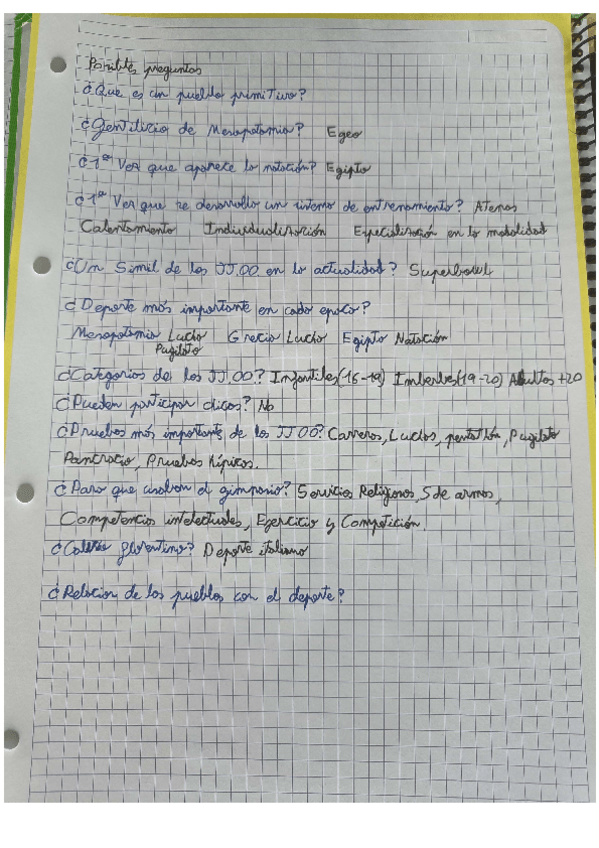 Posibles preguntas
¿Que es un pueblo primitivo?
¿Gentilicio de Mesopotamia? Egeo
¿1ª Vez que aparece la natación? Egipto
¿1ª Vez que se desarrolla un sistema de entrenamiento? Atenas
Calentamiento Individualización Especialización en la modalidad
¿Un Simil de los JJ.OO en la actualidad? Superbowl
¿Deporte más importante en cada epoca?
Mesopotamia Lucha Grecia Lucha Egipto Natación
Pugilato
¿Categorias de los JJ.OO? Infantiles(16-19) Imberbes(19-20) Adultos +20
¿Pueden participar chicas? No
¿Pruebas más importantes de los JJOO? Carreras, Luchas, pentatlón, Pugilato
Pancracio, Pruebas hípicas.
¿Para que usaban el gimnasio? Servicios Religiosos, S de armas,
Competencias intelectuales, Ejercicio y Competición.
florentino? Deporte italiano
¿Relacion de los pueblos con el deporte?